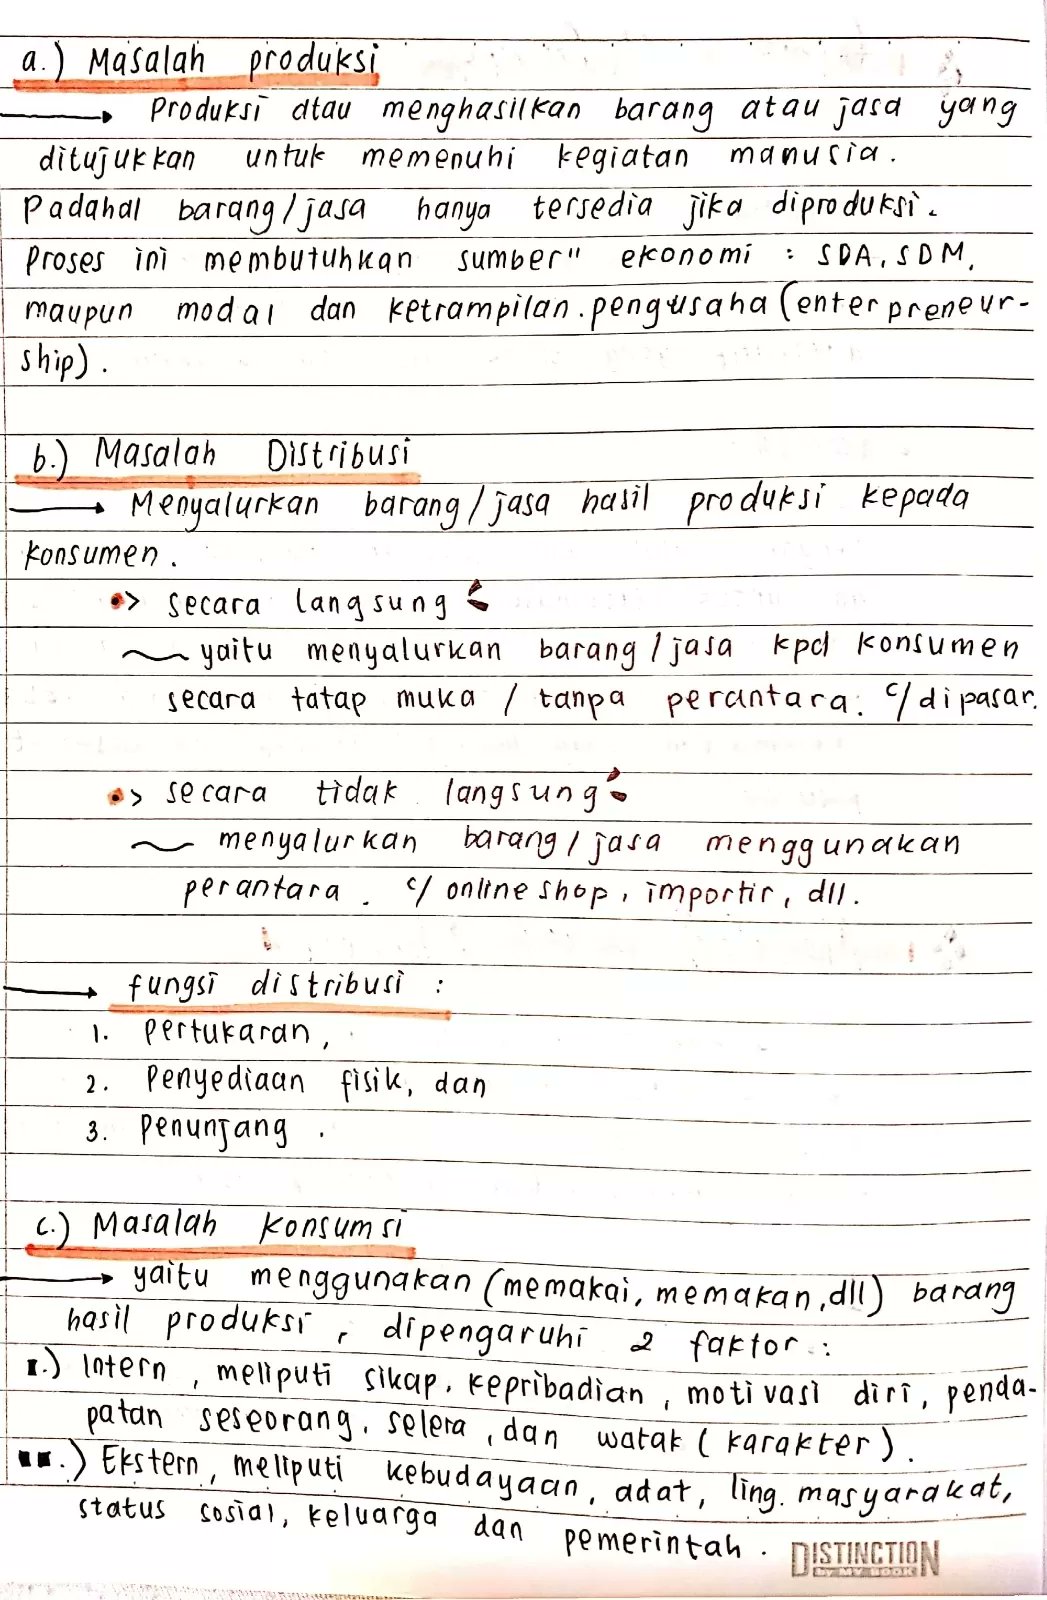 a.) Masalah produksi
→ Produksi atau menghasilkan barang atau jasa yang
ditujukkan untuk memenuhi kegiatan manusia.
Padahal barang/jasa hanya tersedia jika diproduksi.
Proses ini membutuhkan sumber" ekonomi : SDA, SDM,
maupun modal dan ketrampilan.pengusaha (enterpreneur-
ship).
b.) Masalah Distribusi
→ Menyalurkan barang/jasa hasil produksi kepada
konsumen.
•> secara langsung :
~ yaitu menyalurkan barang/jasa kpd konsumen
secara tatap muka / tanpa perantara. c/ dipasar.
•> secara tidak langsung :
~ menyalurkan barang/jasa menggunakan
perantara. c/ online shop, importir, dll.
→ fungsi distribusi :
1. Pertukaran,
2. Penyediaan fisik, dan
3. Penunjang.
c.) Masalah Konsumsi
→ yaitu menggunakan (memakai, memakan, dll) barang
hasil produksi, dipengaruhi 2 faktor :
I.) Intern, meliputi sikap, kepribadian, motivasi diri, penda-
patan seseorang, selera, dan watak (karakter).
II.) Ekstern, meliputi kebudayaan, adat, ling. masyarakat,
status sosial, keluarga dan pemerintah.
DISTINCTION
by MY BOOK